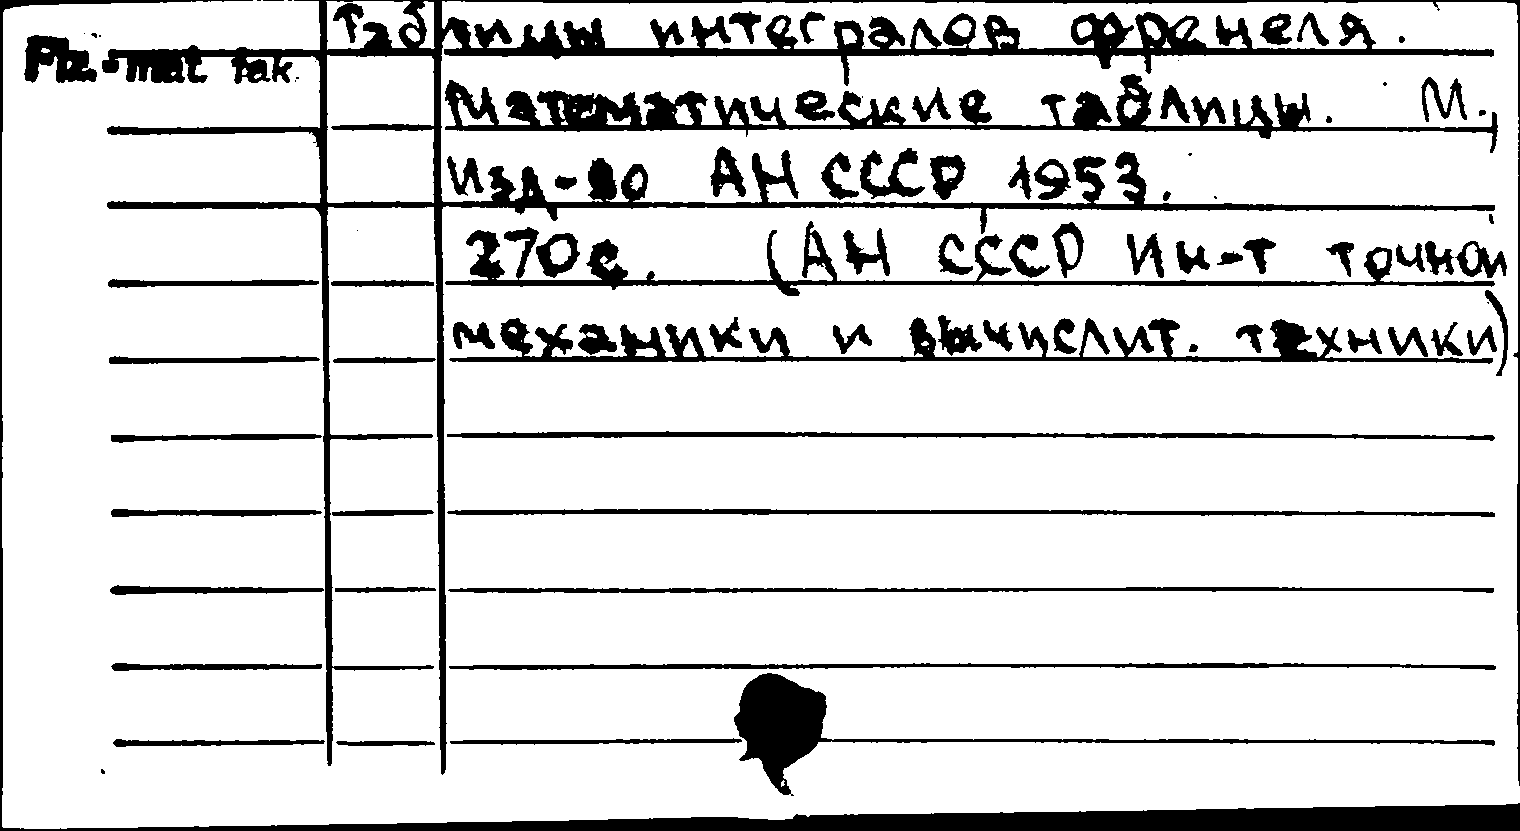 Таблицы интегралов френеля.
Fiz.-mat. fak.
Математические таблицы. М.,
Изд-во АН СССР 1953.
270с. (АН СССР Ин-т точной
механики и вычислит. техники).